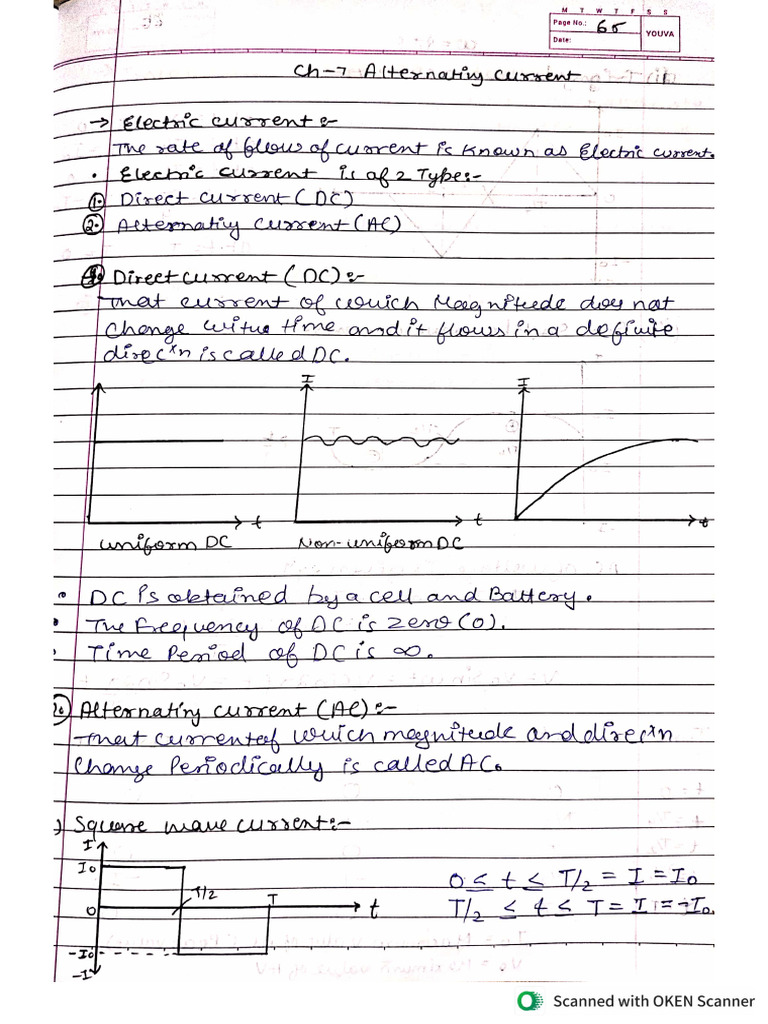 M T W T F S S
Page No.: 65
YOUVA
Date:
Ch-7 Alternating Current
→ Electric current :-
The rate of flow of current is known as Electric current.
• Electric current is of 2 Type:-
1. Direct current (DC)
2. Alternating current (AC)
1. Direct current (DC) :-
That current of which Magnitude does not
change with time and it flows in a definite
direcxn is called DC.
I I
t t t
uniform DC Non-uniform DC
• DC is obtained by a cell and Battery.
• The Frequency of DC is zero (0).
• Time Period of DC is ∞.
Alternating current (AC) :-
That current of which magnitude and direcxn
change Periodically is called AC.
) Square wave current :-
I
I0
0 T/2 T t
-I0
-I
0 ≤ t ≤ T/2 = I = I0
T/2 ≤ t ≤ T = I = -I0.
Scanned with OKEN Scanner